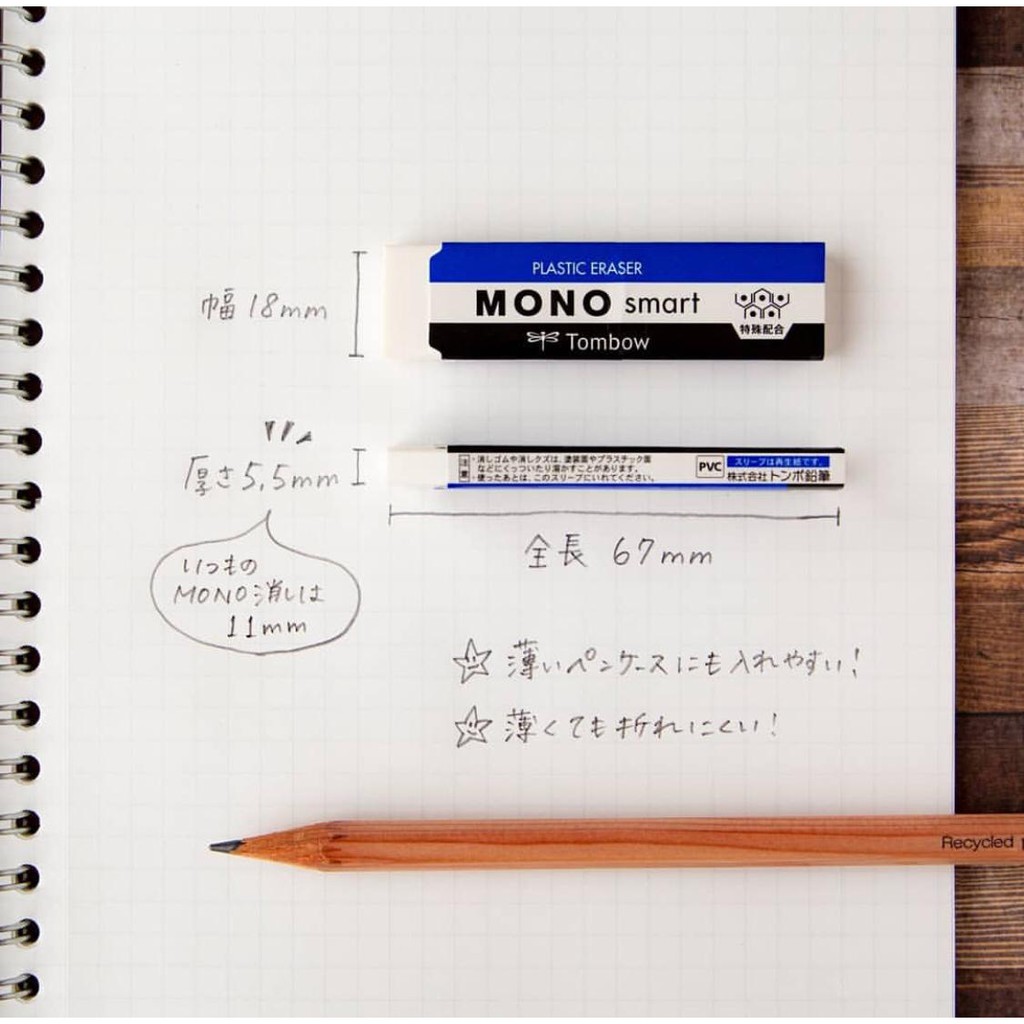 PLASTIC ERASER
MONO smart
特殊配合
Tombow
幅 18mm
厚さ 5.5mm
注意
・消しゴムや消しクズは、塗装面やプラスチック面
などにくっついたり溶かすことがあります。
・使ったあとは、このスリーブにいれてください。
PVC
スリーブは再生紙です。
株式会社トンボ鉛筆
全長 67mm
いつもの
MONO消しは
11mm
☆ 薄いペンケースにも入れやすい！
☆ 薄くても折れにくい！
Recycled